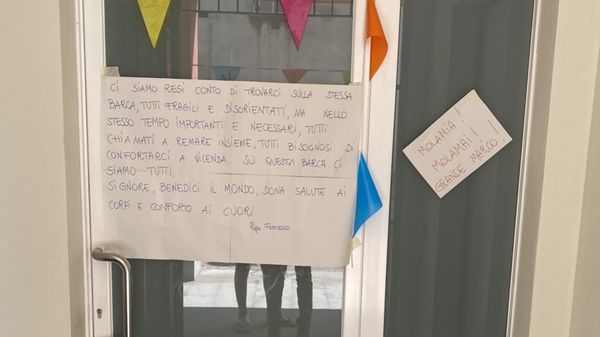 CI SIAMO RESI CONTO DI TROVARCI SULLA STESSA
BARCA, TUTTI FRAGILI E DISORIENTATI, MA NELLO
STESSO TEMPO IMPORTANTI E NECESSARI, TUTTI
CHIAMATI A REMARE INSIEME, TUTTI BISOGNOSI DI
CONFORTARCI A VICENDA. SU QUESTA BARCA CI
SIAMO TUTTI.
SIGNORE, BENEDICI IL MONDO, DONA SALUTE AI
CORPI E CONFORTO AI CUORI
Papa Francesco
MOLAMIA!
MOLAMAI!!
GRANDE MARCO